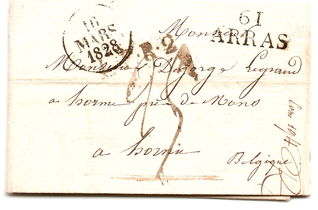 16
MARS
1828
61
ARRAS
Monsieur
R.2
Monsieur Legrand
a hornu près de Mons
a hornu
Belgique